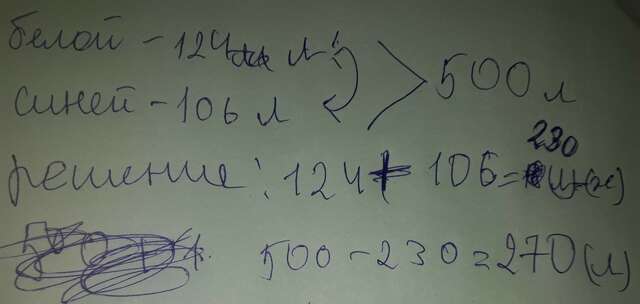 белой - 124 л
синей - 106 л > 500 л
решение: 124 + 106 = 230 (л)
500 - 230 = 270 (л)